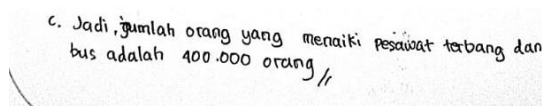 c. Jadi, jumlah orang yang menaiki pesawat terbang dan
bus adalah 400.000 orang //